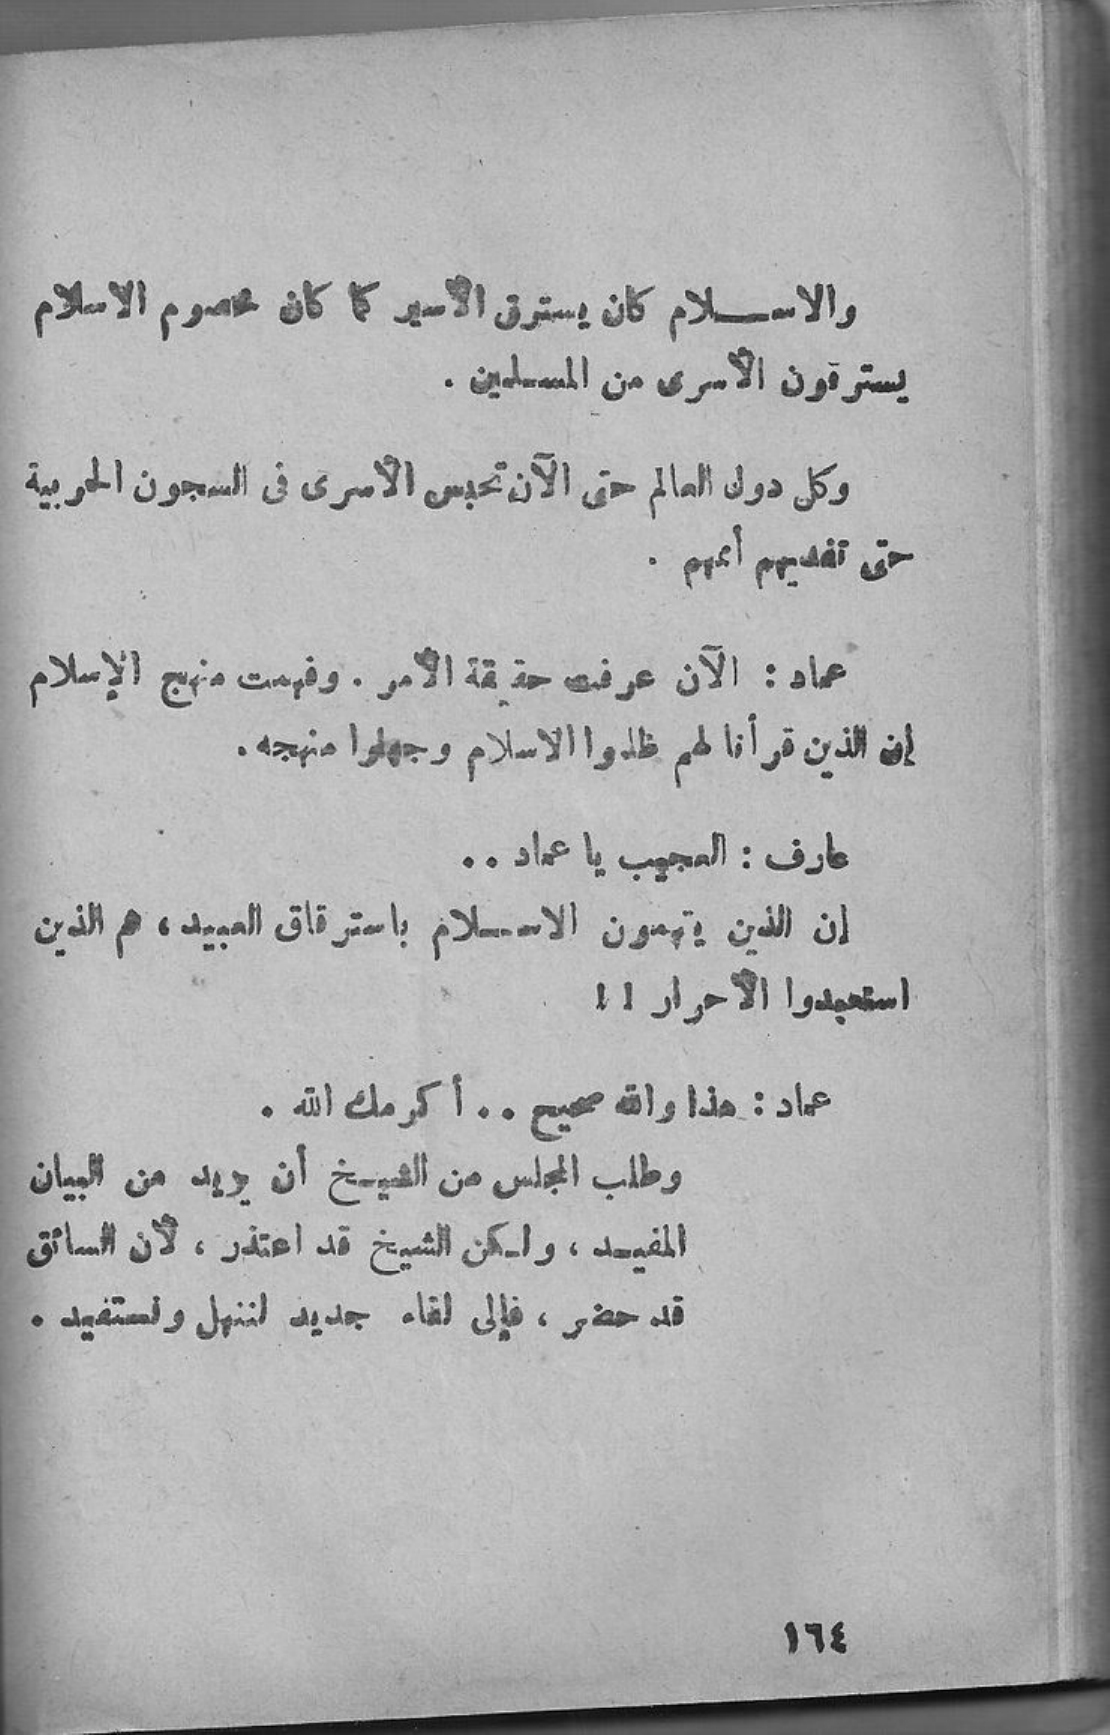 والاسلام كان يسترق الأسير كما كان خصوم الاسلام
يسترقون الأسرى من المسلمين .
وكل دول العالم حتى الآن تحبس الأسرى فى السجون الحربية
حتى تفديهم أممهم .
عماد : الآن عرفت حقيقة الأمر . وفهمت منهج الإسلام
إن الذين قرأنا لهم ظلموا الاسلام وجهلوا منهجه .
عارف : العجيب يا عماد ..
إن الذين يتهمون الاسلام باسترقاق العبيد ، هم الذين
استعبدوا الأحرار !!
عماد : هذا والله صحيح .. أكرمك الله .
وطلب المجلس من الشيخ أن يزيد من البيان
المفيد ، ولكن الشيخ قد اعتذر ، لأن السائق
قد حضر ، فإلى لقاء جديد لننهل ونستفيد .
١٦٤